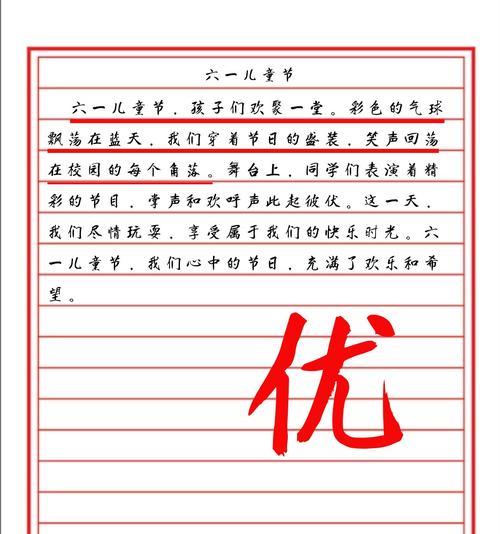 六一儿童节
六一儿童节，孩子们欢聚一堂。彩色的气球
飘荡在蓝天，我们穿着节日的盛装，笑声回荡
在校园的每个角落。舞台上，同学们表演着精
彩的节目，掌声和欢呼声此起彼伏。这一天，
我们尽情玩耍，享受属于我们的快乐时光。六
一儿童节，我们心中的节日，充满了欢乐和希
望。
优